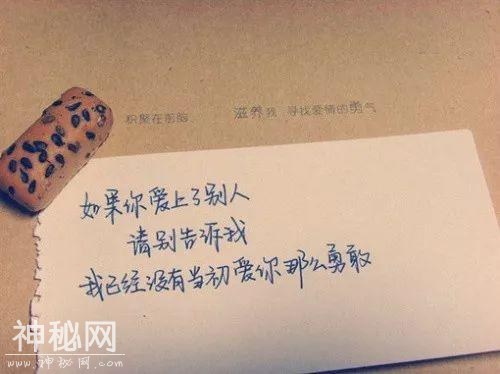 积聚在前胸 滋养我 寻找爱情的勇气
如果你爱上了别人
请别告诉我
我已经没有当初爱你那么勇敢
神秘网
www.神秘网.com